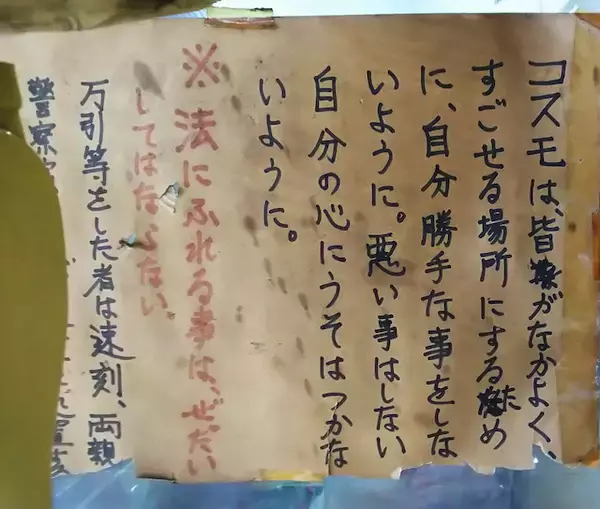 コスモは、皆がなかよく、
すごせる場所にするため
に、自分勝手な事をしな
いように。悪い事はしない
自分の心にうそはつかな
いように。
※法にふれる事は、ぜったい
してはならない
万引等をした者は速刻、両親
警察